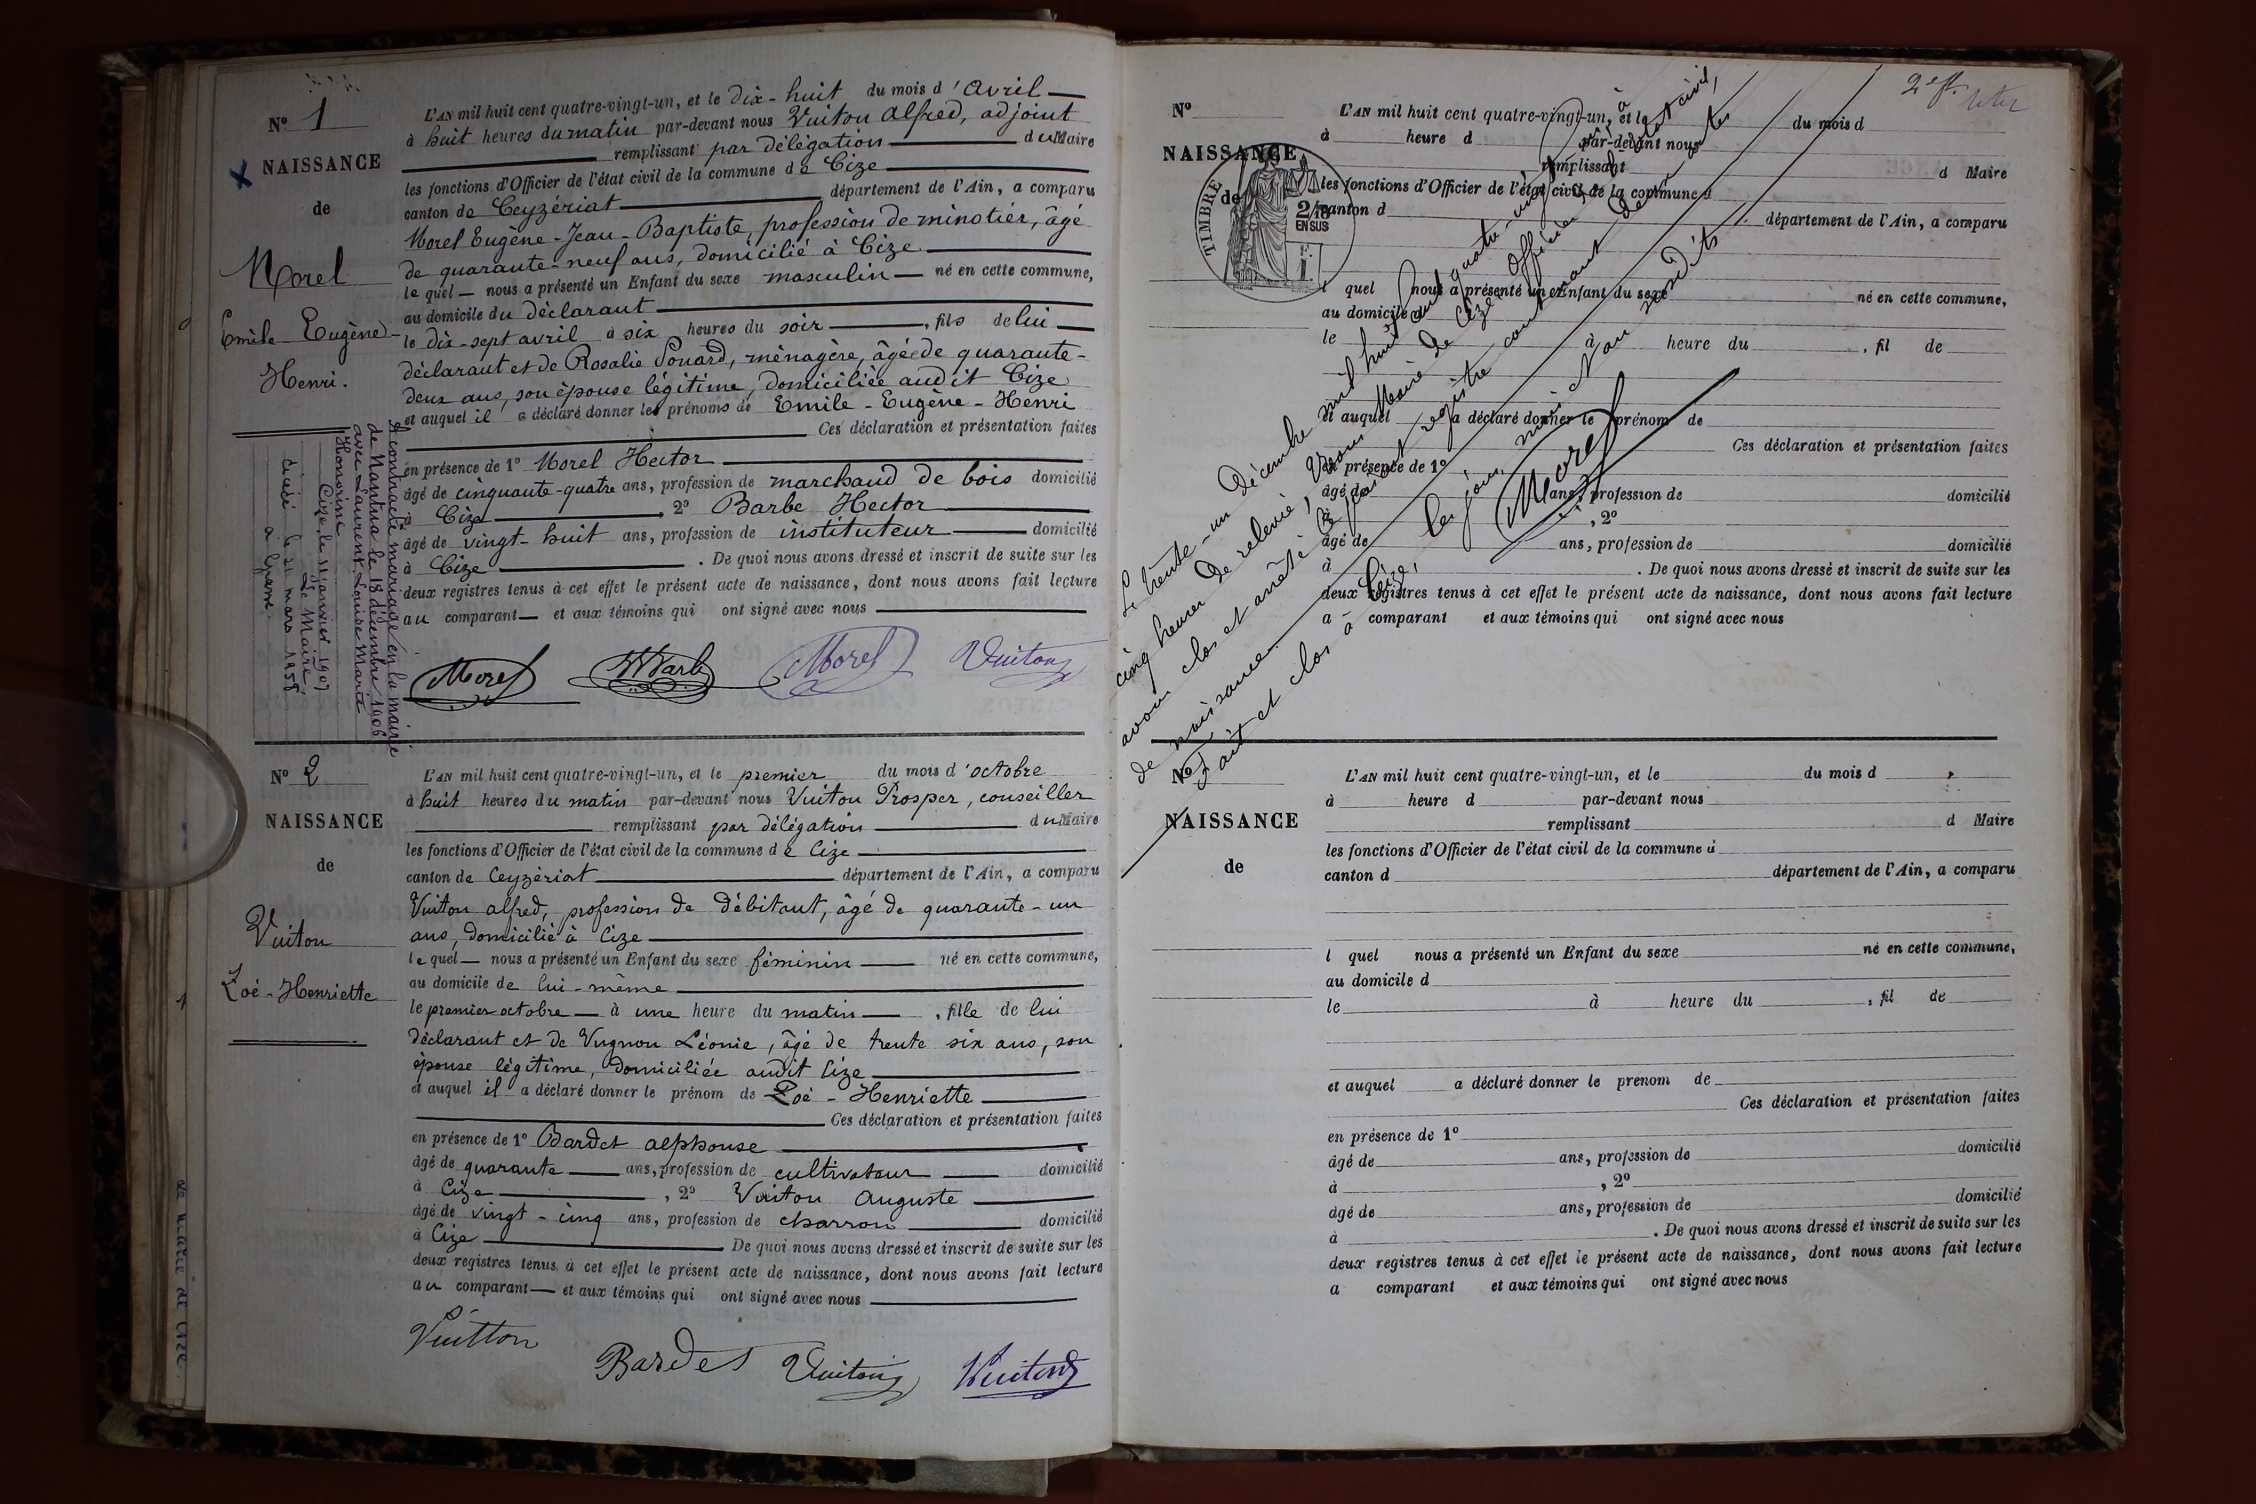 N° 1
NAISSANCE
de
Morel
Emile Eugène-
Henri.
L'AN mil huit cent quatre-vingt-un, et le dix-huit du mois d'avril
à huit heures du matin par-devant nous Vuiton Alfred, adjoint
remplissant par délégation du Maire
les fonctions d'Officier de l'état civil de la commune de Cize
canton de Ceyzériat département de l'Ain, a comparu
Morel Eugène-Jean-Baptiste, profession de minotier, âgé
de quarante-neuf ans, domicilié à Cize
lequel nous a présenté un Enfant du sexe masculin né en cette commune,
au domicile du déclarant
le dix-sept avril à six heures du soir, fils de lui
déclarant et de Rosalie Pouard, ménagère, âgée de quarante-
deux ans, son épouse légitime, domiciliée audit Cize
et auquel il a déclaré donner les prénoms de Emile-Eugène-Henri
Ces déclaration et présentation faites
en présence de 1° Morel Hector
âgé de cinquante-quatre ans, profession de marchand de bois domicilié
à Cize, 2° Barbe Hector
âgé de vingt-huit ans, profession de instituteur domicilié
à Cize. De quoi nous avons dressé et inscrit de suite sur les
deux registres tenus à cet effet le présent acte de naissance, dont nous avons fait lecture
au comparant et aux témoins qui ont signé avec nous
Morel HBarbe Morel Vuiton
A contracté mariage en la mairie
de Nantua le 18 décembre 1906
avec Laurent, Louise Marie
Honorine
Cize, le 11 janvier 1907
Le Maire,
décédé le 21 mars 1958
à
N° 2
NAISSANCE
de
Vuiton
Zoé-Henriette
L'AN mil huit cent quatre-vingt-un, et le premier du mois d'octobre
à huit heures du matin par-devant nous Vuiton Prosper, conseiller
remplissant par délégation du Maire
les fonctions d'Officier de l'état civil de la commune de Cize
canton de Ceyzériat département de l'Ain, a comparu
Vuiton alfred, profession de débitant, âgé de quarante-un
ans, domicilié à Cize
lequel nous a présenté un Enfant du sexe féminin né en cette commune,
au domicile de lui-même
le premier octobre à une heure du matin, fille de lui
déclarant et de Vugnon Léonie, âgé de trente six ans, son
épouse légitime, domiciliée audit Cize
et auquel il a déclaré donner le prénom de Zoé-Henriette
Ces déclaration et présentation faites
en présence de 1° Bardet alphonse
âgé de quarante ans, profession de cultivateur domicilié
à Cize, 2° Vuiton auguste
âgé de vingt-cinq ans, profession de charron domicilié
à Cize De quoi nous avons dressé et inscrit de suite sur les
deux registres tenus à cet effet le présent acte de naissance, dont nous avons fait lecture
au comparant et aux témoins qui ont signé avec nous
Vuitton Bardet Vuiton Vuiton
de Mairie de Cize
2e ft.
N°
NAISSANCE
de
TIMBRE
2/10
EN SUS
L'AN mil huit cent quatre-vingt-un, et le du mois d
à heure d par-devant nous
remplissant d Maire
les fonctions d'Officier de l'état civil de la commune d
canton d département de l'Ain, a comparu
l quel nous a présenté un Enfant du sexe né en cette commune,
au domicile d
le à heure du , fil de
et auquel a déclaré donner le prénom de
Ces déclaration et présentation faites
en présence de 1°
âgé de ans, profession de domicilié
à , 2°
âgé de ans, profession de domicilié
à . De quoi nous avons dressé et inscrit de suite sur les
deux registres tenus à cet effet le présent acte de naissance, dont nous avons fait lecture
a comparant et aux témoins qui ont signé avec nous
Le trente-un décembre mil huit cent quatre-vingt-un, à
cinq heures de relevée, nous Maire de Cize, Officier de l'état civil,
avons clos et arrêté le présent registre contenant deux actes
de naissance.
Fait et clos à Cize, les jour, mois et an susdits.
Morel
N°
NAISSANCE
de
L'AN mil huit cent quatre-vingt-un, et le du mois d
à heure d par-devant nous
remplissant d Maire
les fonctions d'Officier de l'état civil de la commune d
canton d département de l'Ain, a comparu
l quel nous a présenté un Enfant du sexe né en cette commune,
au domicile d
le à heure du , fil de
et auquel a déclaré donner le prenom de
Ces déclaration et présentation faites
en présence de 1°
âgé de ans, profession de domicilié
à , 2°
âgé de ans, profession de domicilié
à . De quoi nous avons dressé et inscrit de suite sur les
deux registres tenus à cet effet le présent acte de naissance, dont nous avons fait lecture
a comparant et aux témoins qui ont signé avec nous